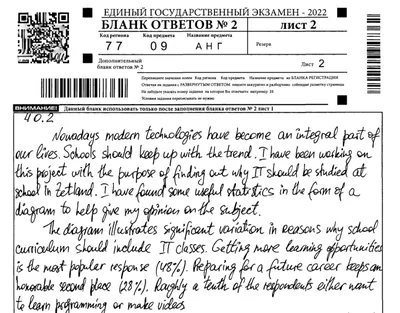 ЕДИНЫЙ ГОСУДАРСТВЕННЫЙ ЭКЗАМЕН - 2022
БЛАНК ОТВЕТОВ № 2 лист 2
Код региона Код предмета Название предмета
77 09 АНГ Резерв
Дополнительный
бланк ответов № 2
Лист 2
Перепишите значения полей "Код региона", "Код предмета", "Название предмета" из БЛАНКА РЕГИСТРАЦИИ
ВНИМАНИЕ! Данный бланк использовать только после заполнения бланка ответов № 2 лист 1
40.2
Nowadays modern technologies have become an integral part of
our lives. Schools should keep up with the trend. I have been working on
this project with the purpose of finding out why IT should be studied at
school in Zetland. I have found some useful statistics in the form of a
diagram to help give my opinion on the subject.
The diagram illustrates significant variation in reasons why school
curriculum should include IT classes. Getting more learning opportunities
is the most popular response (48%). Preparing for a future career keeps an
honorable second place (28%). Roughly a tenth of the respondents either want
to learn programming or make videos